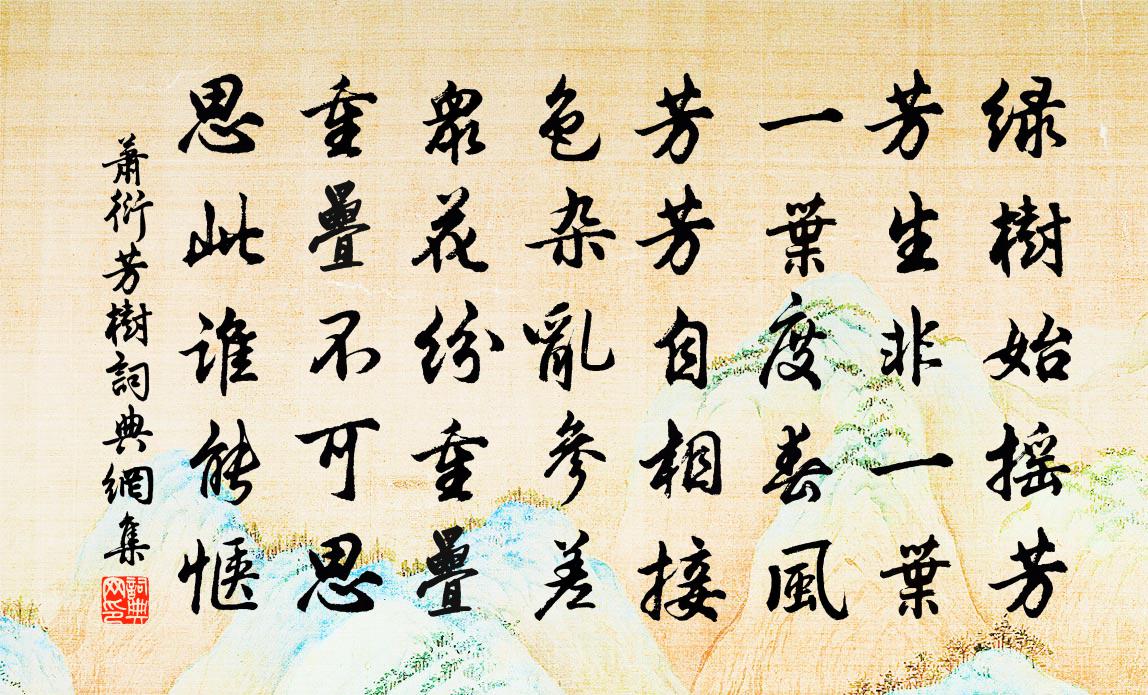 绿樹始摇芳
芳生非一葉
一葉度春風
芳芳自相接
色杂亂參差
眾花紛重疊
重疊不可思
思此谁能愜
萧衍芳樹詞典網集
詞典